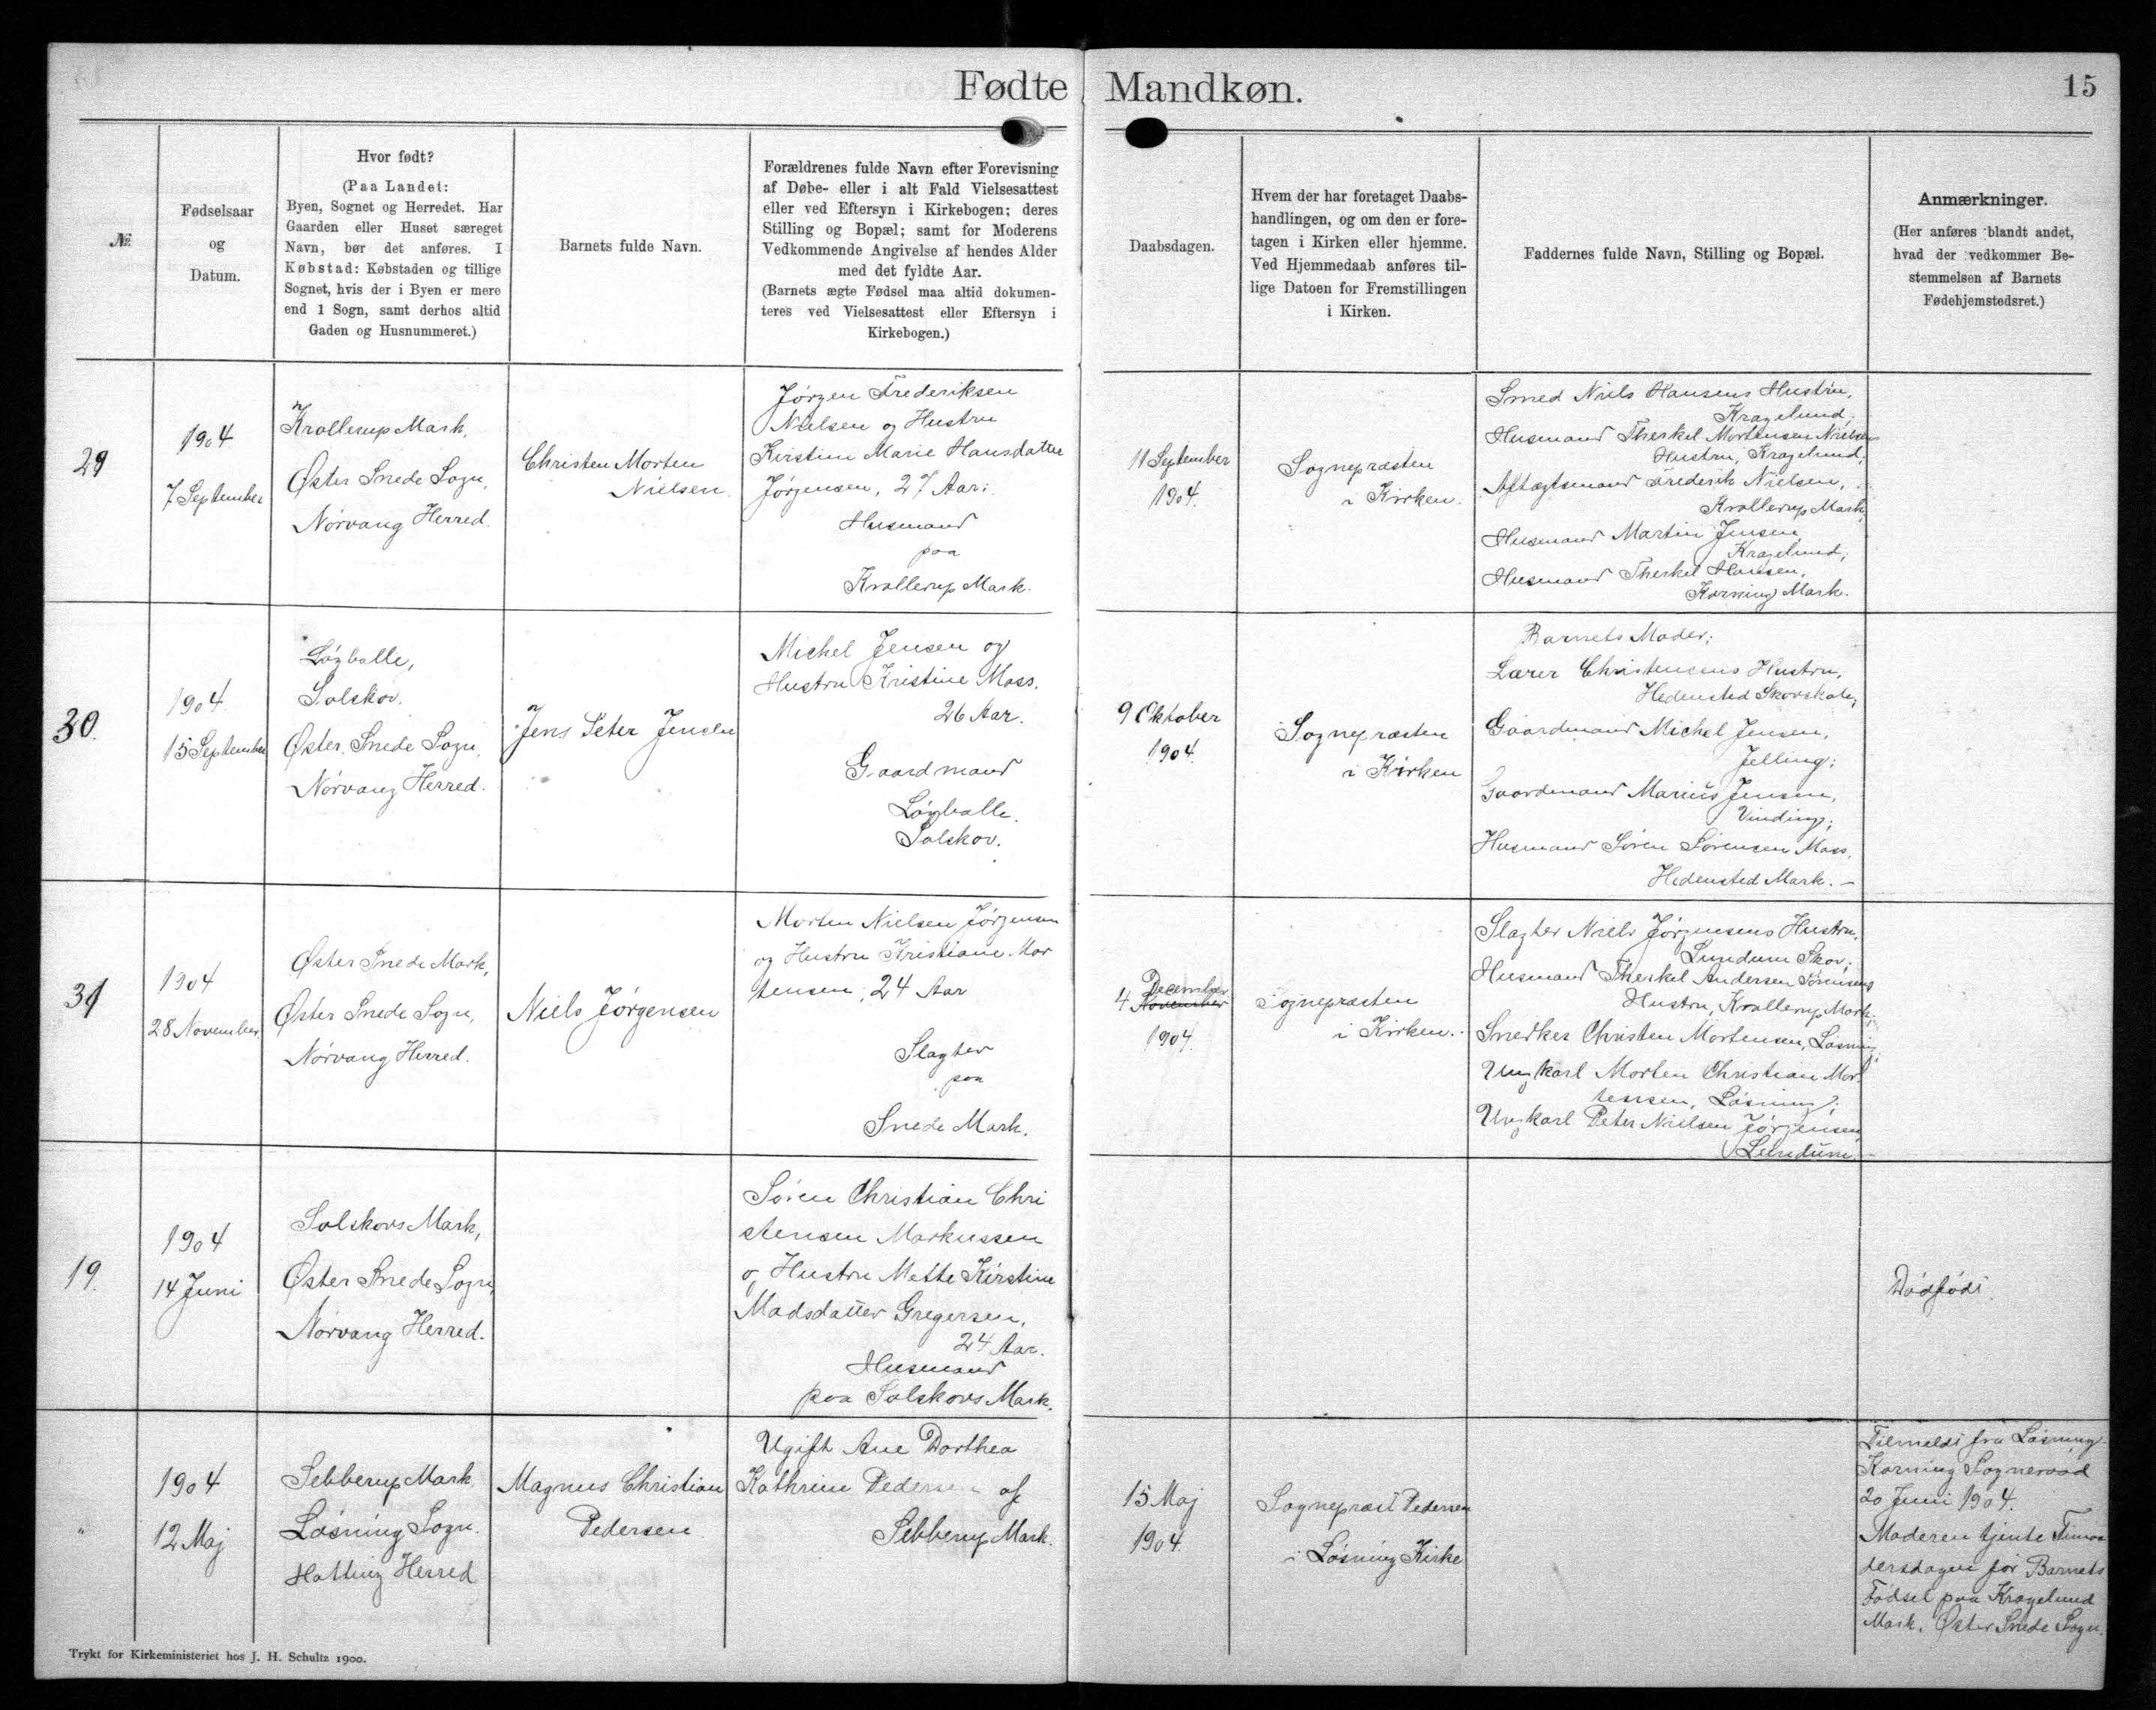 Fødte Mandkøn.
15
№
Fødselsaar
og
Datum.
Hvor født?
(Paa Landet:
Byen, Sognet og Herredet. Har
Gaarden eller Huset særeget
Navn, bør det anføres. I
Købstad: Købstaden og tillige
Sognet, hvis der i Byen er mere
end 1 Sogn, samt derhos altid
Gaden og Husnummeret.)
Barnets fulde Navn.
Forældrenes fulde Navn efter Forevisning
af Døbe- eller i alt Fald Vielsesattest
eller ved Eftersyn i Kirkebogen; deres
Stilling og Bopæl; samt for Moderens
Vedkommende Angivelse af hendes Alder
med det fyldte Aar.
(Barnets ægte Fødsel maa altid dokumen-
teres ved Vielsesattest eller Eftersyn i
Kirkebogen.)
Daabsdagen.
Hvem der har foretaget Daabs-
handlingen, og om den er fore-
tagen i Kirken eller hjemme.
Ved Hjemmedaab anføres til-
lige Datoen for Fremstillingen
i Kirken.
Faddernes fulde Navn, Stilling og Bopæl.
Anmærkninger.
(Her anføres blandt andet,
hvad der vedkommer Be-
stemmelsen af Barnets
Fødehjemstedsret.)
29
1904
7 September
Krollerup Mark,
Øster Snede Sogn,
Nørvang Herred.
Christen Morten
Nielsen.
Jørgen Frederiksen
Nielsen og Hustru
Kirstine Marie Hansdatter
Jørgensen, 27 Aar;
Husmand
paa
Krollerup Mark.
11 September
1904.
Sognepræsten
i Kirken.
Smed Niels Hansens Hustru,
Kragelund;
Husmand Therkel Mortensen Nielsens
Hustru, Kragelund;
Aftægtsmand Frederik Nielsen,
Krollerup Mark;
Husmand Martin Jensen,
Kragelund;
Husmand Therkel Hansen,
Korning Mark.
30.
1904
15 September
Løgballe,
Solskov.
Øster Snede Sogn,
Nørvang Herred.
Jens Peter Jensen
Michel Jensen og
Hustru Kristine Moss.
26 Aar.
Gaardmand
Løgballe.
Solskov.
9 Oktober
1904.
Sognepræsten
i Kirken
Barnets Moder;
Lærer Christensens Hustru,
Hedensted Skovskole;
Gaardmand Michel Jensen,
Jelling;
Gaardmand Marius Jensen,
Vinding;
Husmand Søren Sørensen Moss,
Hedensted Mark. –
31
1904
28 November
Øster Snede Mark,
Øster Snede Sogn,
Nørvang Herred.
Niels Jørgensen
Morten Nielsen Jørgensen
og Hustru Kristiane Mor
tensen, 24 Aar
Slagter
paa
Snede Mark.
December
4 November
1904.
Sognepræsten
i Kirken.
Slagter Niels Jørgensens Hustru,
Lundum Skov;
Husmand Therkel Andersen Sørensens
Hustru, Krollerup Mark;
Snedker Christen Mortensen, Løsning;
Ungkarl Morten Christian Mor
tensen, Løsning;
Ungkarl Peter Nielsen Jørgensen
Lundum. –
19.
1904
14 Juni
Solskovs Mark,
Øster Snede Sogn,
Nørvang Herred.
Søren Christian Chri
stensen Markussen
og Hustru Mette Kirstine
Madsdatter Gregersen,
24 Aar.
Husmand
paa Solskovs Mark.
Dødfødt.
"
1904
12 Maj
Sebberup Mark
Løsning Sogn.
Hatting Herred
Magnus Christian
Pedersen
Ugift Ane Dorthea
Kathrine Pedersen af
Sebberup Mark.
15 Maj
1904.
Sognepræst Pedersen
i Løsning Kirke
Tilmeldt fra Løsning
Korning Sogneraad
20 Juni 1904.
Moderen tjente Timaa
dersdagen før Barnets
Fødsel paa Kragelund
Mark, Øster Snede Sogn.
Trykt for Kirkeministeriet hos J. H. Schultz 1900.